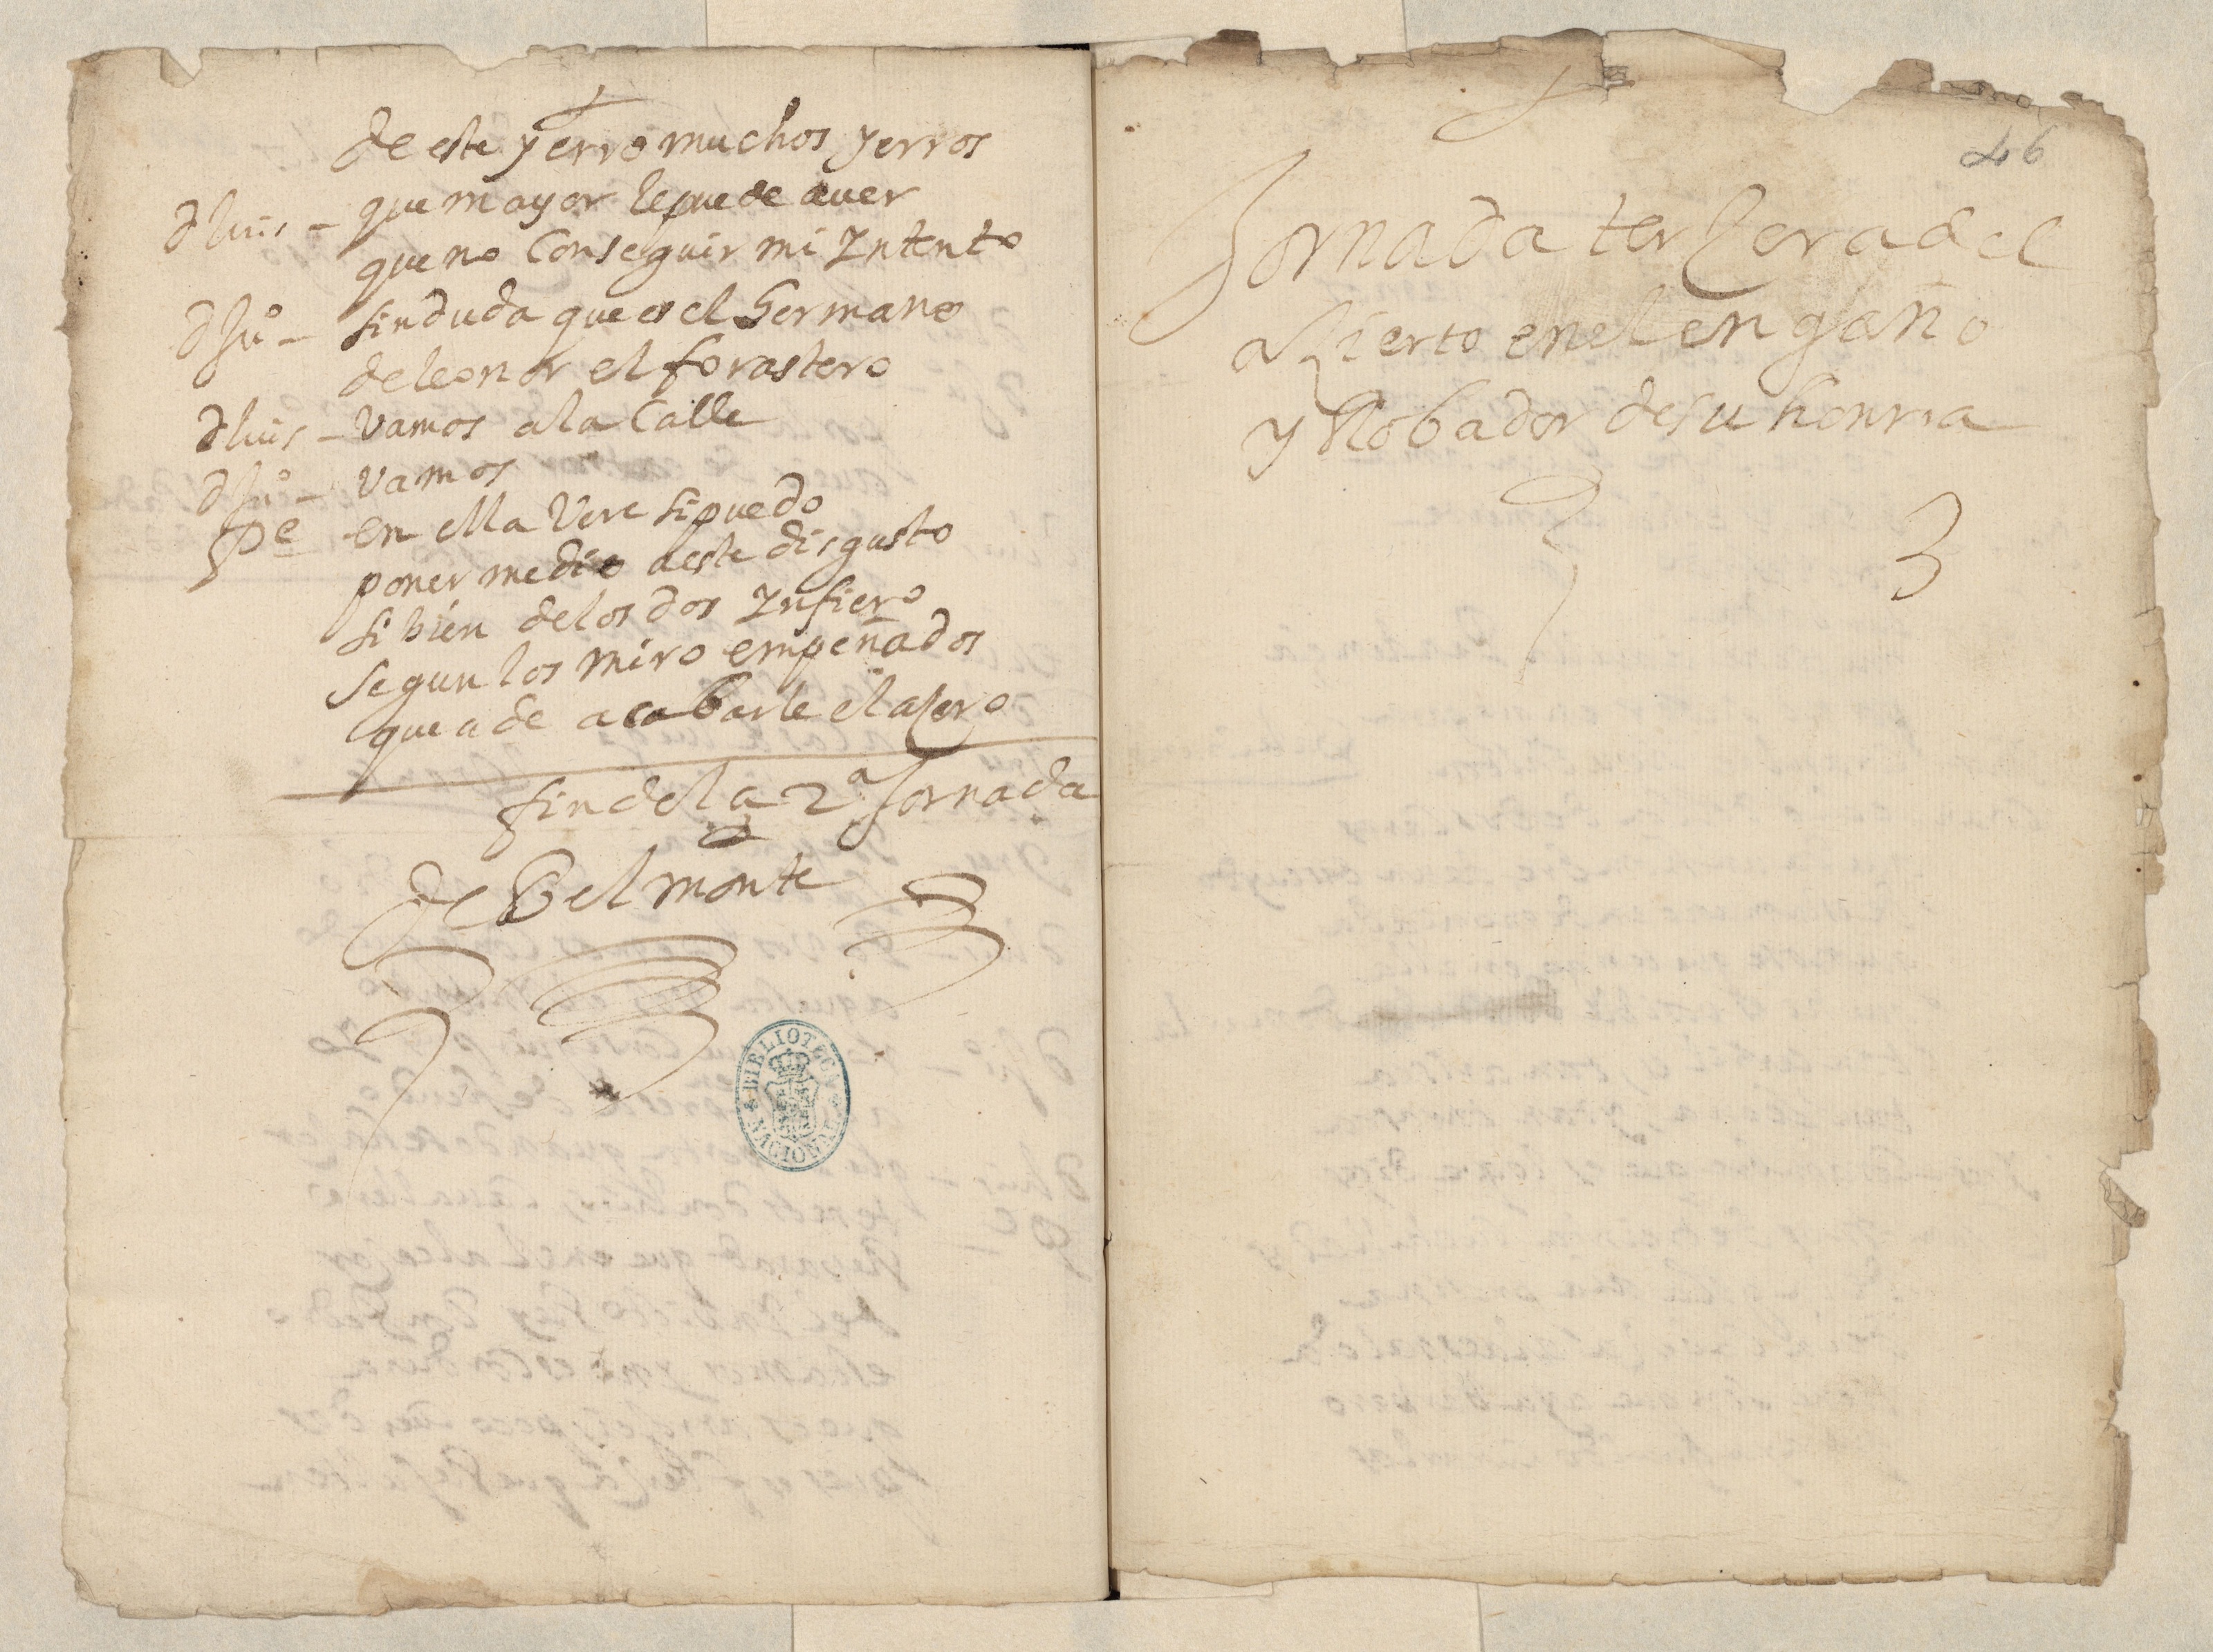 de este yerro muchos yerros
d luis – que mayor le puede auer
que no Conseguir mi Yntento
d Juº – sin duda que es el hermano
de leonor el forastero
d luis – Vamos a la Calle
d Juº – Vamos
Pe en ella Vere si puedo
poner medio a este disgusto
si bien de los dos Ynfiero
segun los miro empeñados
que a de acabarle el açero
fin de la 2ª Jornada
de Belmonte
BIBLIOTECA NACIONAL
46
Jornada terçera del
açierto en el engaño
y Robador de su honrra
3